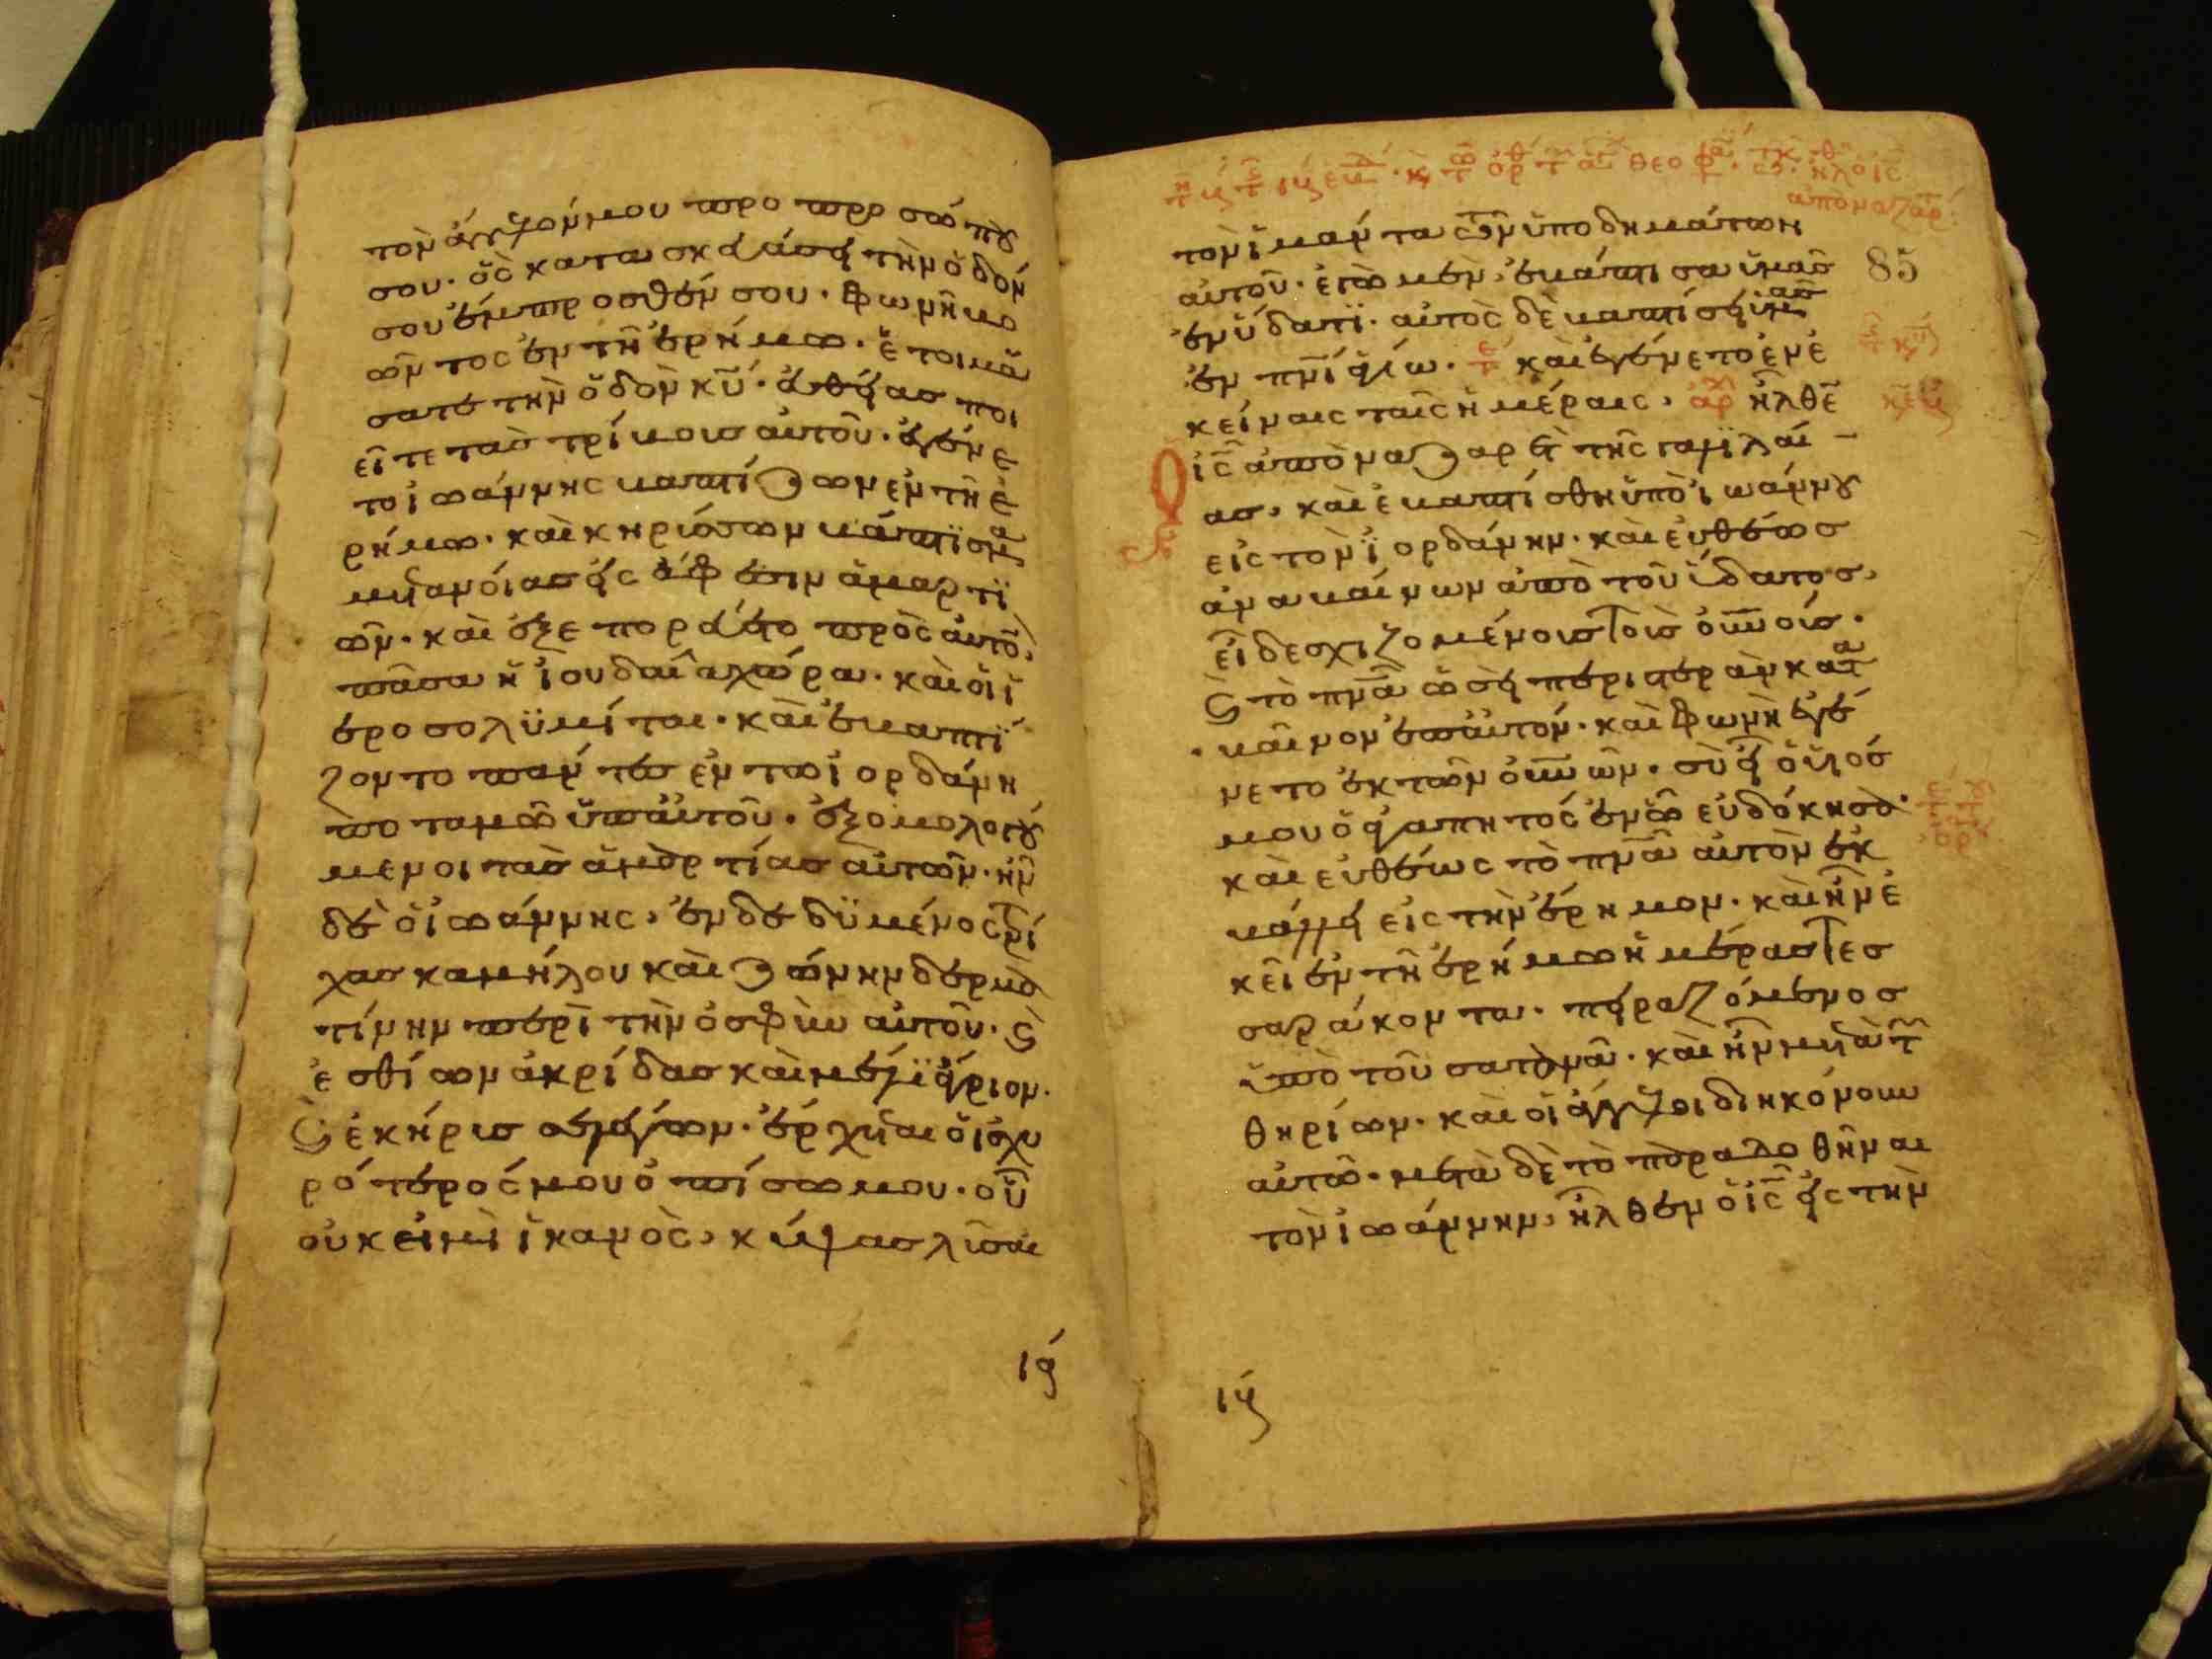 τὸν ἄγγελόν μου πρὸ προσώπου
σου· ὃς κατασκευάσει τὴν ὁδόν
σου ἔμπροσθέν σου· φωνὴ βο
ῶντος ἐν τῇ ἐρήμω· ἑτοιμά
σατε τὴν ὁδὸν κυ· εὐθείας ποι
εῖτε τὰς τρίβους αὐτοῦ· ἐγένε
το ἰωάννης βαπτίζων ἐν τῇ ἐ
ρήμω· καὶ κηρύσσων βάπτισμα
μετανοίας εἰς ἄφεσιν ἁμαρτι
ῶν· καὶ ἐξεπορεύετο πρὸς αὐτὸν
πᾶσα ἡ ἰουδαία χώρα· καὶ οἱ ἱ
εροσολυμίται· καὶ ἐβαπτί
ζοντο πάντες ἐν τῶ ἰορδάνη
ποταμῶ ὑπ' αὐτοῦ· ἐξομολογού
μενοι τὰς ἁμαρτίας αὐτῶν· ἦν
δὲ ὁ ἰωάννης, ἐνδεδυμένος τρί
χας καμήλου καὶ ζώνην δερμα
τίνην περὶ τὴν ὀσφὺν αὐτοῦ· ϗ
ἐσθίων ἀκρίδας καὶ μέλι ἄγριον·
ϗ ἐκήρυσσεν λέγων· ἔρχεται ὁ ἰσχυ
ρότερός μου ὀπίσω μου· οὗ
οὐκ εἰμὶ ἱκανὸς, κύψας λῦσαι
ις
τὸν ἱμάντα τῶν ὑποδημάτων
αὐτοῦ· ἐγὼ μὲν ἐβάπτισα ὑμᾶς
ἐν ὕδατι· αὐτὸς δὲ βαπτίσει ὑμᾶς
ἐν πνι ἁγίω· καὶ ἐγένετο ἐν ἐ
κείναις ταῖς ἡμέραις, ἦλθεν
ις ἀπὸ ναζαρὲτ τῆς γαλιλαί
ας, καὶ ἐβαπτίσθη ὑπὸ ἰωάννου
εἰς τὸν ἰορδάνην· καὶ εὐθέως
ἀναβαίνων ἀπὸ τοῦ ὕδατος,
εἶδε σχιζομένους τοὺς οὐνούς·
ϗ τὸ πνα ὡσεὶ περιστερὰν κατα
βαῖνον ἐπ' αὐτόν· καὶ φωνὴ ἐγέ
νετο ἐκ τῶν οὐνῶν· σὺ εἶ ὁ υἱός
μου ὁ ἀγαπητός ἐν ᾧ εὐδόκησα·
καὶ εὐθέως τὸ πνα αὐτὸν ἐκ
βάλλει εἰς τὴν ἔρημον· καὶ ἦν ἐ
κεῖ ἐν τῇ ἐρήμω ἡμέρας τεσ
σαράκοντα· πειραζόμενος
ὑπὸ τοῦ σατανᾶ· καὶ ἦν μετὰ τῶν
θηρίων· καὶ οἱ ἄγγελοι διηκόνουν
αὐτῶ· μετὰ δὲ τὸ παραδοθῆναι
τὸν ἰωάννην, ἦλθεν ὁ ις εἰς τὴν
85